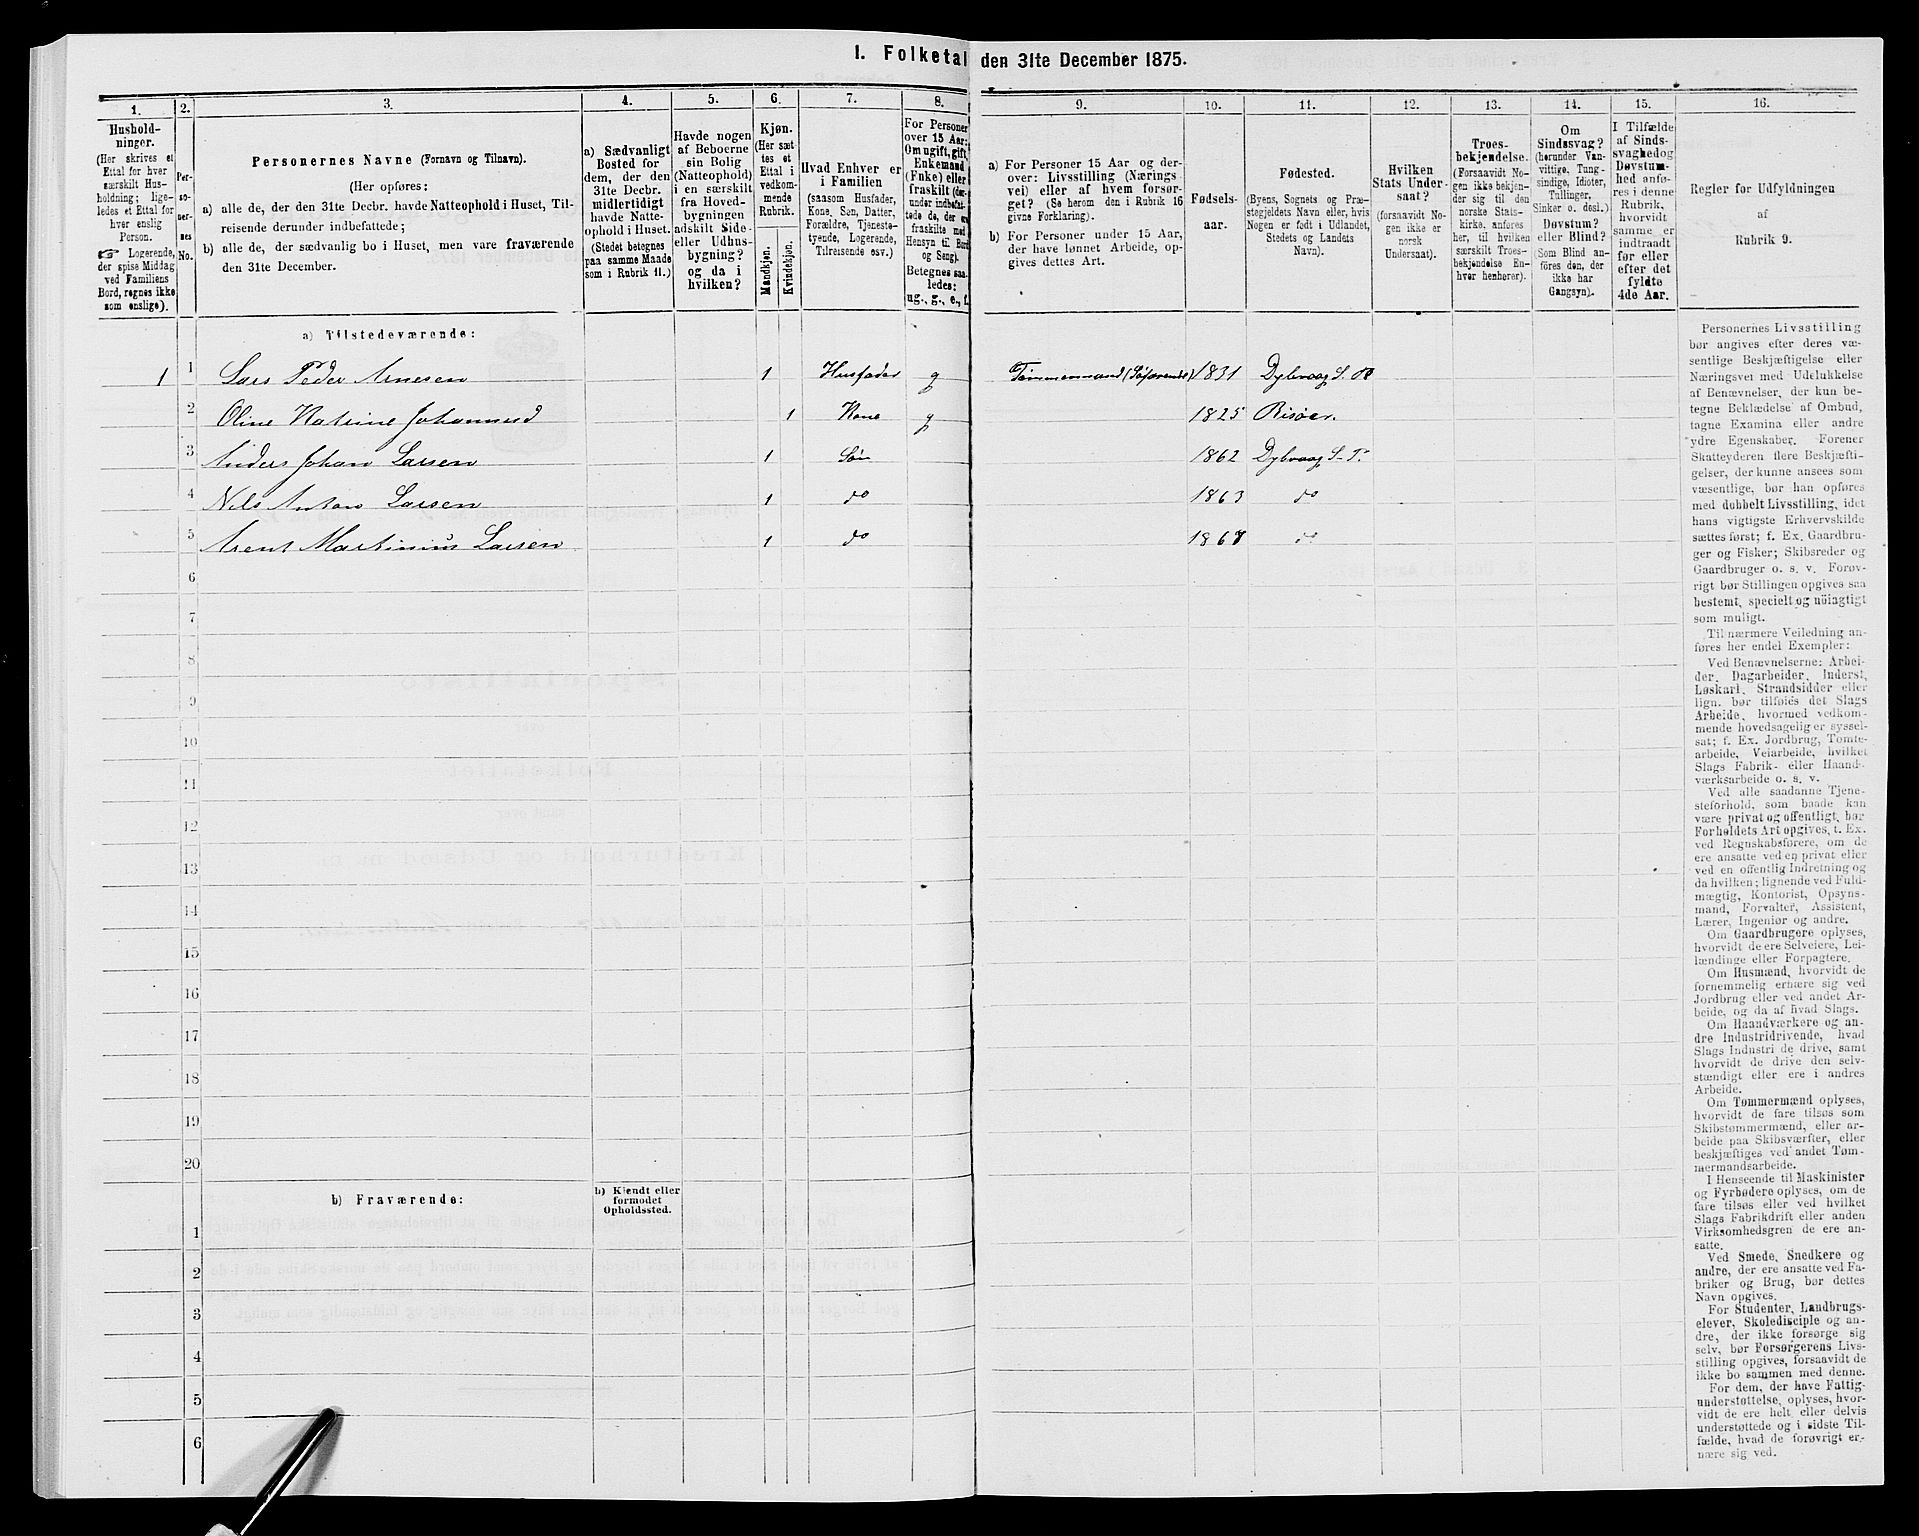 I. Folketal den 31te December 1875.
1.
Hushold-
ninger.
(Her skrives et
Ettal for hver
særskilt Hus-
holdning; lige-
ledes et Ettal for
hver enslig
Person.
☞ Logerende,
der spise Middag
ved Familiens
Bord, regnes ikke
som enslige).
2.
Per-
so-
ner-
nes
No.
3.
Personernes Navne (Fornavn og Tilnavn).
(Her opføres:
a) alle de, der den 31te Decbr. havde Natteophold i Huset, Til-
reisende derunder indbefattede;
b) alle de, der sædvanlig bo i Huset, men vare fraværende
den 31te December.
4.
a) Sædvanligt
Bosted for
dem, der den
31te Decbr.
midlertidigt
havde Natte-
ophold i Huset.
(Stedet betegnes
paa samme Maade
som i Rubrik 11.)
5.
Havde nogen
af Beboerne
sin Bolig
(Natteophold)
i en særskilt
fra Hoved-
bygningen
adskilt Side-
eller Udhus-
bygning?
og da i
hvilken?
6.
Kjøn.
(Her sæt-
tes et
Ettal i
vedkom-
mende
Rubrik.
Mandkjøn.
Kvindekjøn.
7.
Hvad Enhver er
i Familien
(saasom Husfader,
Kone, Søn, Datter,
Forældre, Tjeneste-
tyende, Logerende,
Tilreisende osv.)
8.
For Personer
over 15 Aar:
Om ugift, gift,
Enkemand
(Enke) eller
fraskilt (der-
under indbefat-
tede de, der ere
fraskilte med
Hensyn til Bord
og Seng).
Betegnes saa-
ledes:
ug., g., e., f.
9.
a) For Personer 15 Aar og der-
over: Livsstilling (Nærings-
vei) eller af hvem forsør-
get? (Se herom den i Rubrik 16
givne Forklaring).
b) For Personer under 15 Aar,
der have lønnet Arbeide, op-
gives dettes Art.
10.
Fødsels-
aar.
11.
Fødested.
(Byens, Sognets og Præ-
stegjeldets Navn eller, hvis
Nogen er født i Udlandet,
Stedets og Landets
Navn).
12.
Hvilken
Stats Under-
saat?
(forsaavidt No-
gen ikke er
norsk
Undersaat).
13.
Troes-
bekjendelse.
(Forsaavidt No-
gen ikke bekjen-
der sig til den
norske Stats-
kirke, anføres
her, til hvilken
særskilt Troes-
bekjendelse En-
hver henhører).
14.
Om
Sindssvag?
(herunder Van-
vittige, Tung-
sindige, Idioter,
Tullinger,
Sinker o. desl.)
Døvstum?
eller Blind?
(Som Blind an-
føres den, der
ikke har
Gangsyn).
15.
I Tilfælde
af Sinds-
svaghed og
Døvstum-
hed anfø-
res i denne
Rubrik,
hvorvidt
samme er
indtraadt
før eller
efter det
fyldte
4de Aar.
16.
Regler for Udfyldningen
af
Rubrik 9.
a) Tilstedeværende:
1 1 Lars Peder Arnesen 1 Husfader g Tømmermand (Søfarende) 1831 Dybvaag S.
2 Oline Katrine 1 Kone g 1825 Risøer.
3 Anders Johan Larsen 1 Søn 1862 Dybvaag
4 Nils Anton Larsen 1 do 1863 do
5 Arent Martinius Larsen 1 do do
6
7
8
9
10
11
12
13
14
15
16
17
18
19
20
b) Fraværende:
b) Kjendt eller
formodet
Opholdssted.
1
2
3
4
5
6
Personernes Livsstilling
bør angives efter deres væ-
sentlige Beskjæftigelse eller
Næringsvei med Udelukkelse
af Benævnelser, der kun be-
tegne Beklædelse af Ombud,
tagne Examina eller andre
ydre Egenskaber. Forener
Skatteyderen flere Beskjæfti-
gelser, der kunne ansees som
væsentlige, bør han opføres
med dobbelt Livsstilling, idet
hans vigtigste Erhvervskilde
sættes først; f. Ex. Gaardbru-
ger og Fisker; Skibsreder og
Gaardbruger o. s. v. Forøv-
rigt bør Stillingen opgives saa
bestemt, specielt og nöiagtigt
som muligt.
Til nærmere Veiledning an-
føres her endel Exempler:
Ved Benævnelserne: Arbei-
der, Dagarbeider, Inderst,
Løskarl, Strandsidder eller
lign. bør tilføies det Slags
Arbeide, hvormed vedkom-
mende hovedsagelig er syssel-
sat; f. Ex. Jordbrug, Tomte-
arbeide, Veiarbeide, hvilket
Slags Fabrik- eller Haand-
værksarbeide o. s. v.
Ved alle saadanne Tjene-
steforhold, som baade kan
være privat og offentligt, bør
Forholdets Art opgives, t. Ex.
ved Regnskabsførere, om de
ere ansatte ved en privat eller
ved en offentlig Indretning og
da hvilken; lignende ved Fuld-
mægtig, Kontorist, Opsyns-
mand, Forvalter, Assistent,
Lærer, Ingeniør og andre.
Om Gaardbrugere oplyses,
hvorvidt de ere Selveiere, Lei-
lændinge eller Forpagtere.
Om Husmænd, hvorvidt de
fornemmelig ernære sig ved
Jordbrug eller ved andet Ar-
beide, og da af hvad Slags.
Om Haandværkere og an-
dre Industridrivende, hvad
Slags Industri de drive, samt
hvorvidt de drive den selv-
stændigt eller ere i andres
Arbeide.
Om Tømmermænd oplyses,
hvorvidt de fare tilsøs som
Skibstømmermænd, eller ar-
beide paa Skibsværfter, eller
beskjæftiges ved andet Tøm-
mermandsarbeide.
I Henseende til Maskinister
og Fyrbødere oplyses, om de
fare tilsøs eller ved hvilket
Slags Fabrikdrift eller anden
Virksomhedsgren de ere an-
satte.
Ved Smede, Snedkere og
andre, der ere ansatte ved Fa-
briker og Brug, bør dettes
Navn opgives.
For Studenter, Landbrugs-
elever, Skoledisciple og an-
dre, der ikke forsørge sig
selv, bør Forsørgerens Livs-
stilling opgives, forsaavidt de
ikke bo sammen med denne.
For dem, der have Fattig-
understøttelse, oplyses, hvor-
vidt de ere helt eller delvis
understøttede og i sidste Til-
fælde, hvad de forøvrigt er-
nære sig ved.